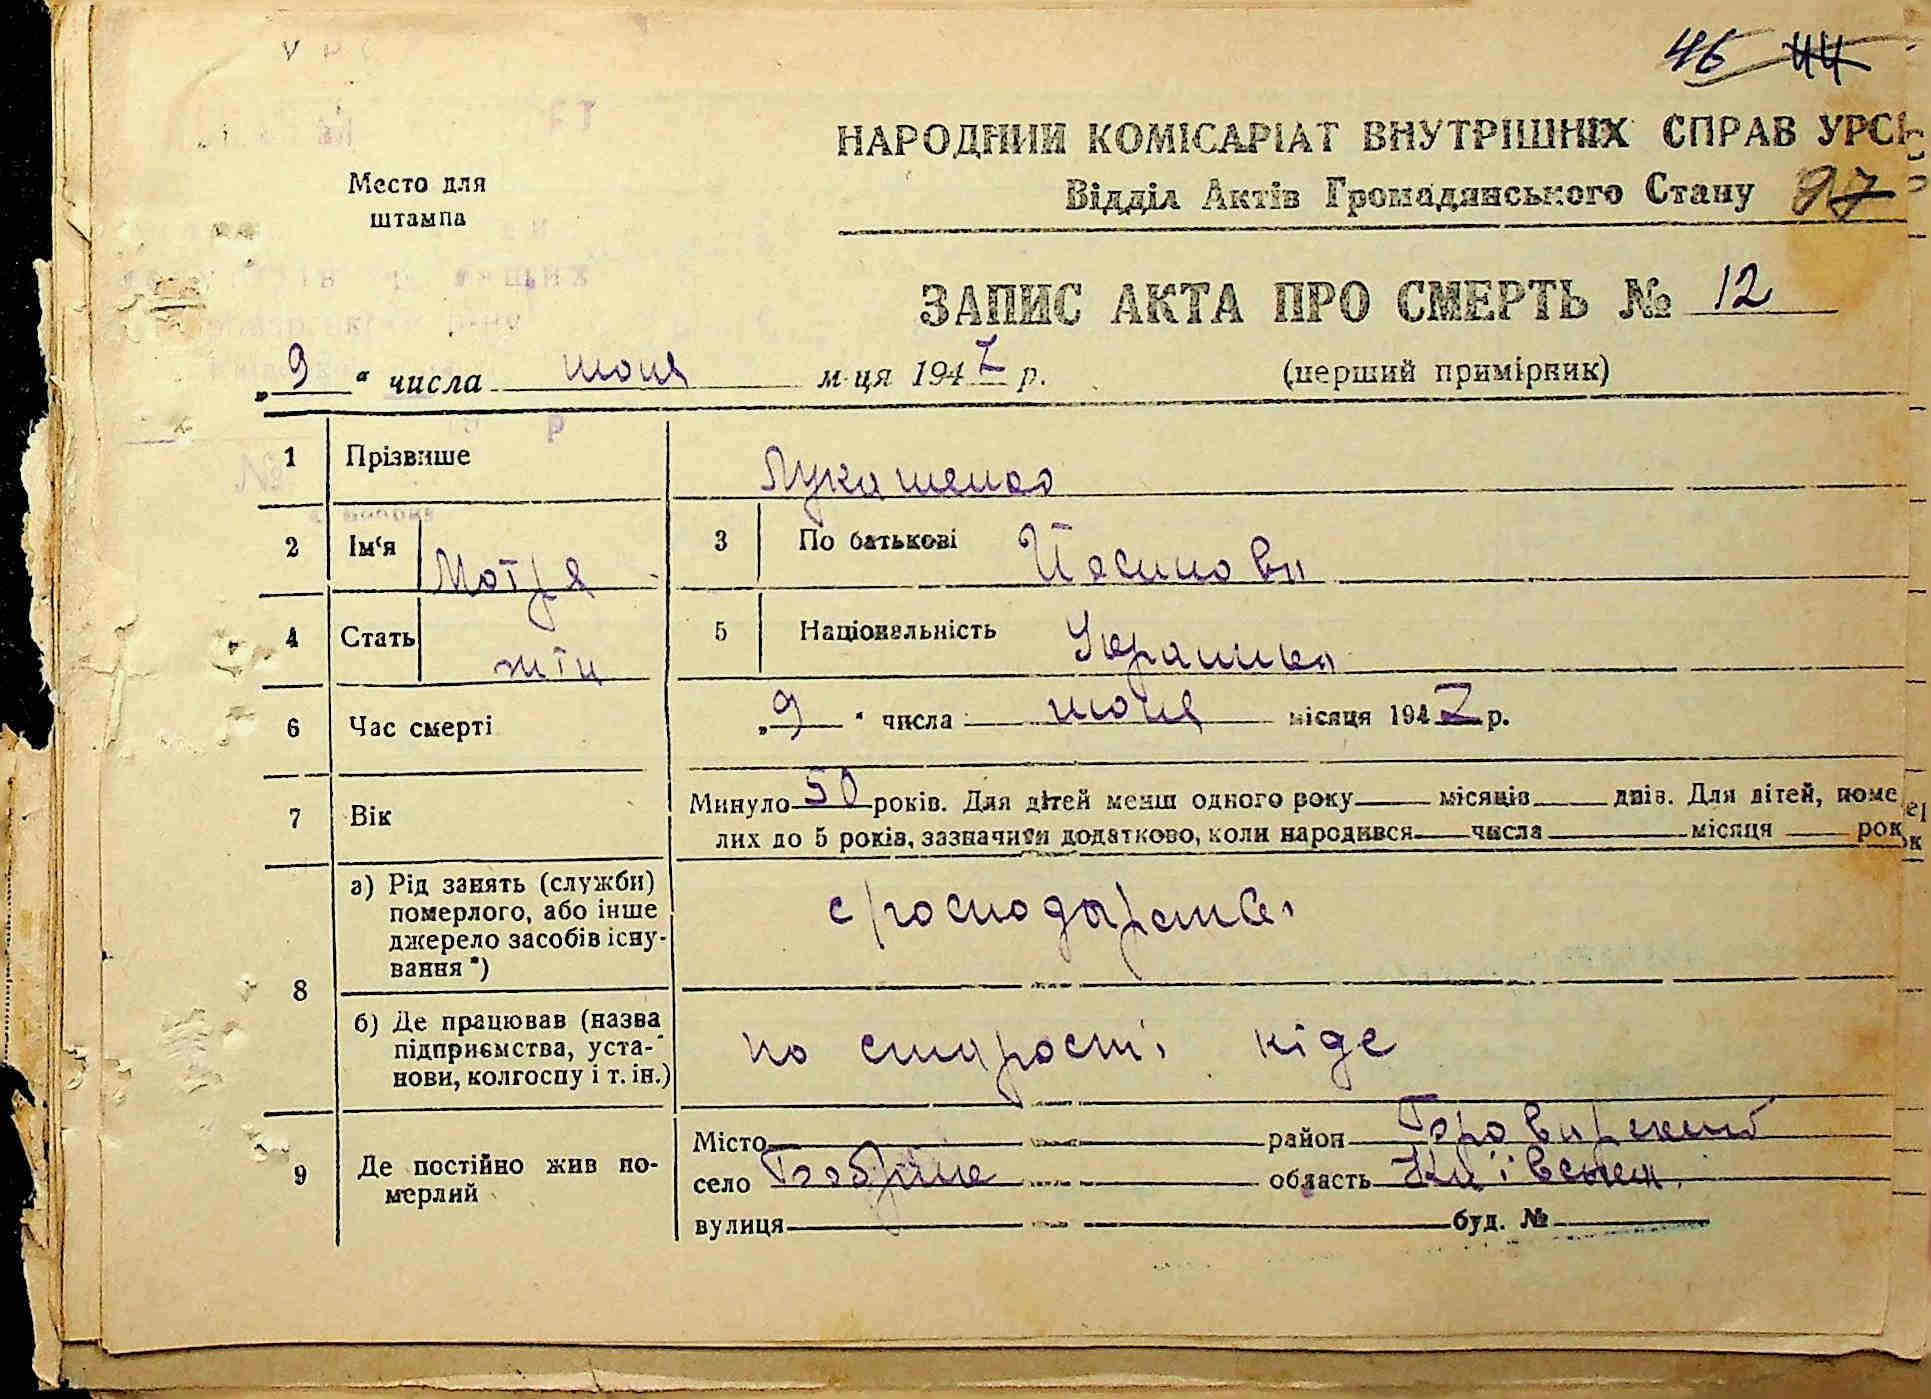 46 44
НАРОДНИЙ КОМІСАРІАТ ВНУТРІШНІХ СПРАВ УРСР
Место для
штампа
Відділ Актів Громадянського Стану 97
ЗАПИС АКТА ПРО СМЕРТЬ № 12
„ 9 “ числа июня м-ця 1947 р. (перший примірник)
1 Прізвише Лукашенко
2 Ім‘я Мотря 3 По батькові Йосиповн
4 Стать жін 5 Національність Українка
6 Час смерті „ 9 “ числа июня місяця 1947 р.
7 Вік Минуло 50 років. Для дітей менш одного року місяців днів. Для дітей, поме
лих до 5 років, зазначити додатково, коли народився числа місяця рок
8 а) Рід занять (служби)
померлого, або інше
джерело засобів існу-
вання *)
с/господарства
б) Де працював (назва
підприємства, уста-
нови, колгоспу і т. ін.)
по старості ніде
9 Де постійно жив по-
мерлий
Місто район Броварський
село область Київська
вулиця буд. №